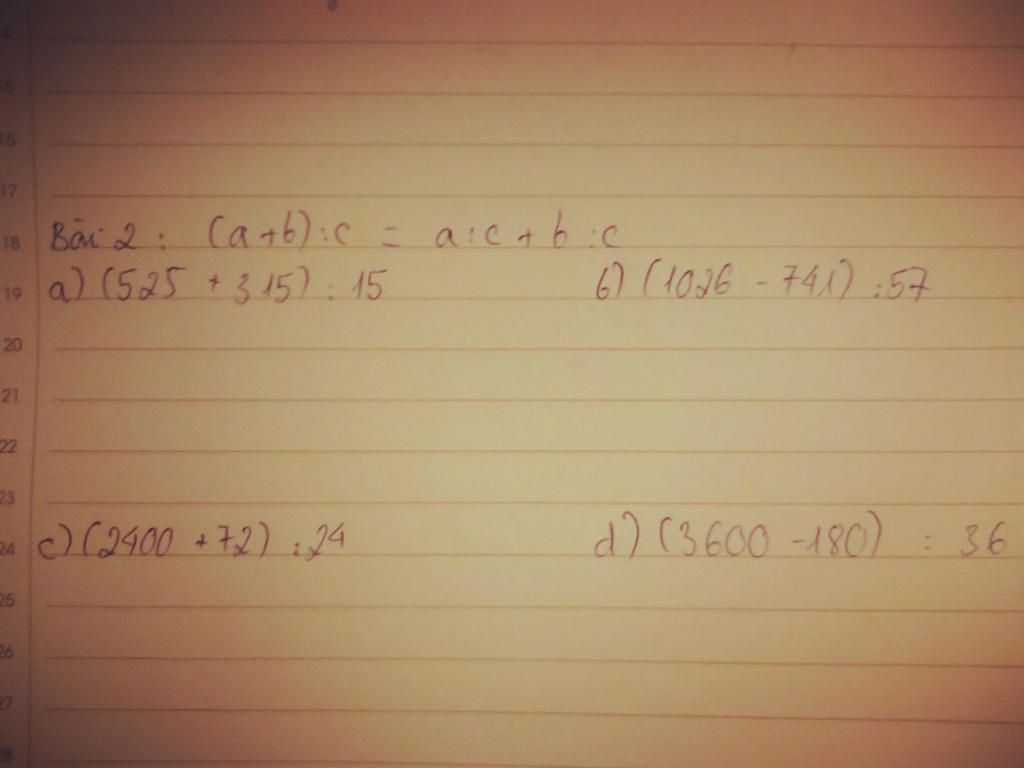 14
15
16
17
18 Bài 2 : (a+b) : c = a : c + b : c
19 a) (525 + 315) : 15 b) (1026 - 741) : 57
20
21
22
23
24 c) (2400 + 72) : 24 d) (3600 - 180) : 36
25
26
27
28